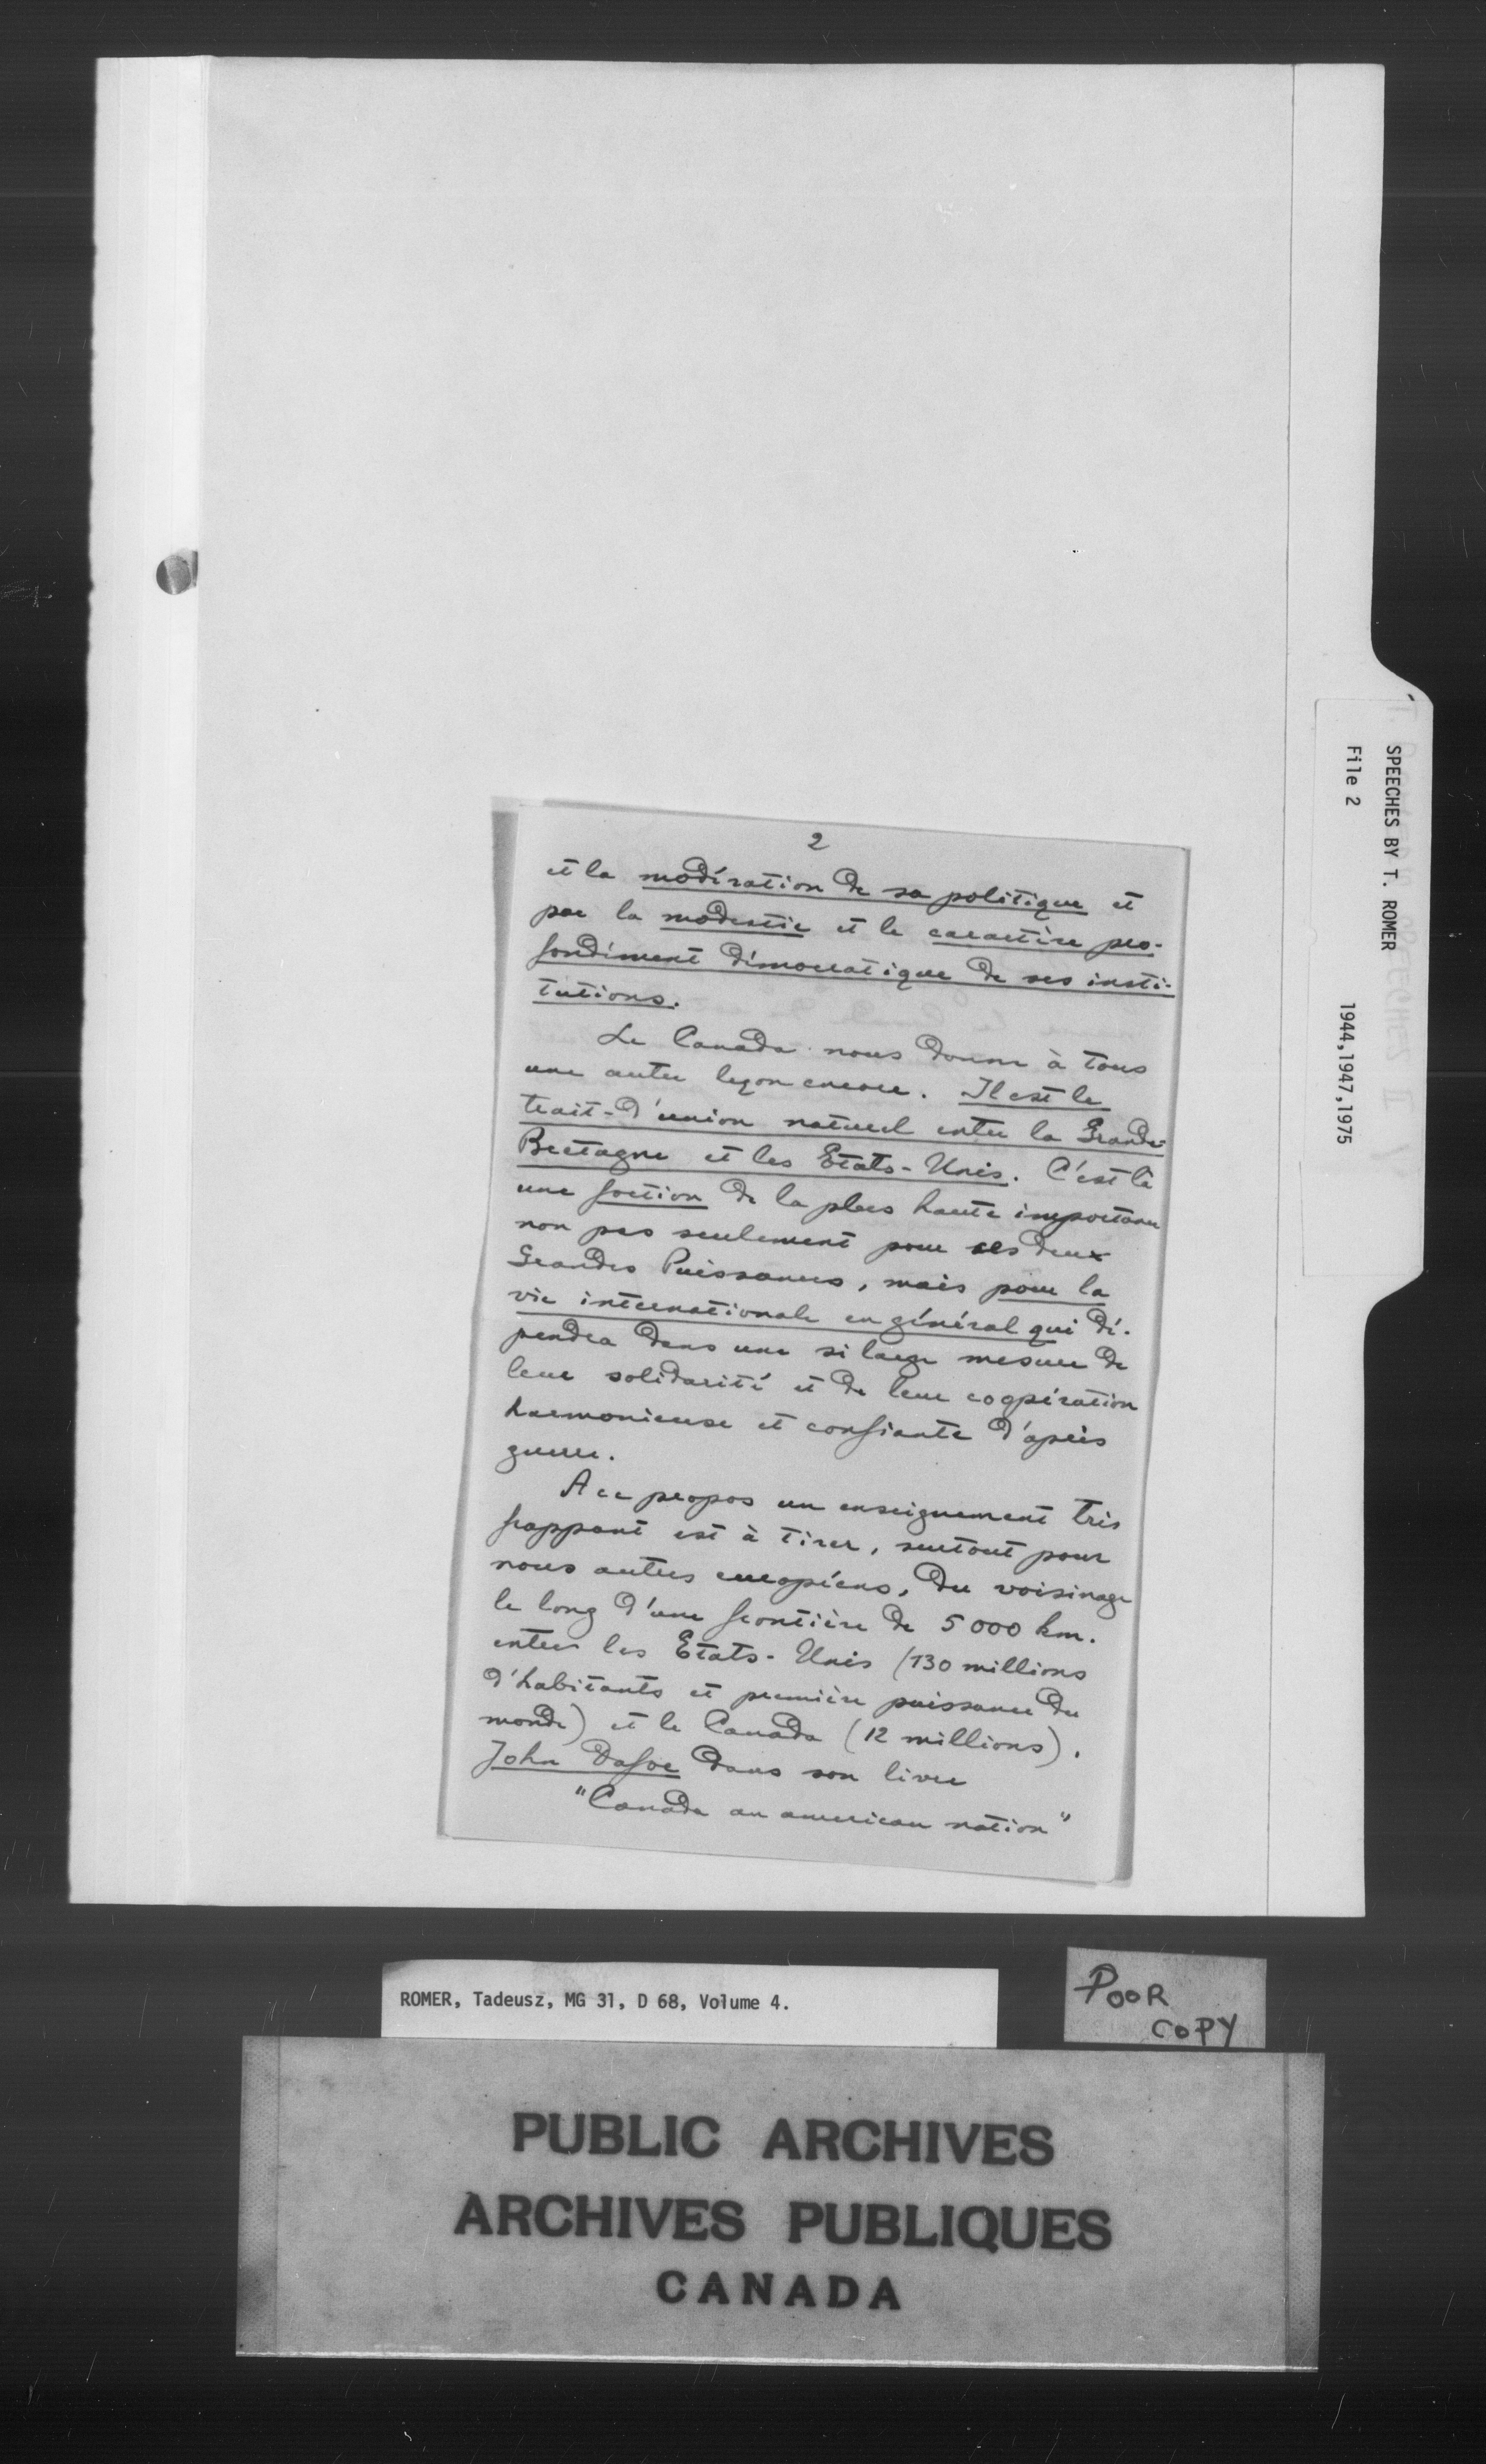 2
et la modération de sa politique et
par la modestie et le caractère pro-
fondément démocratique de ses insti-
tutions.
Le Canada nous donne à tous
une autre leçon encore. Il est le
trait-d'union naturel entre la Grande-
Bretagne et les Etats-Unis. C'est là
une fonction de la plus haute importance
non pas seulement pour ces deux
Grandes Puissances, mais pour la
vie internationale en général qui dé-
pendra dans une si large mesure de
leur solidarité et de leur coopération
harmonieuse et confiante d'après
guerre.
A ce propos un enseignement très
frappant est à tirer, surtout pour
nous autres européens, du voisinage
le long d'une frontière de 5000 km.
entre les Etats-Unis (130 millions
d'habitants et première puissance du
monde) et le Canada (12 millions).
John Dafoe dans son livre
"Canada an american nation"
SPEECHES BY T. ROMER
File 2 1944,1947,1975
ROMER, Tadeusz, MG 31, D 68, Volume 4.
POOR
COPY
PUBLIC ARCHIVES
ARCHIVES PUBLIQUES
CANADA